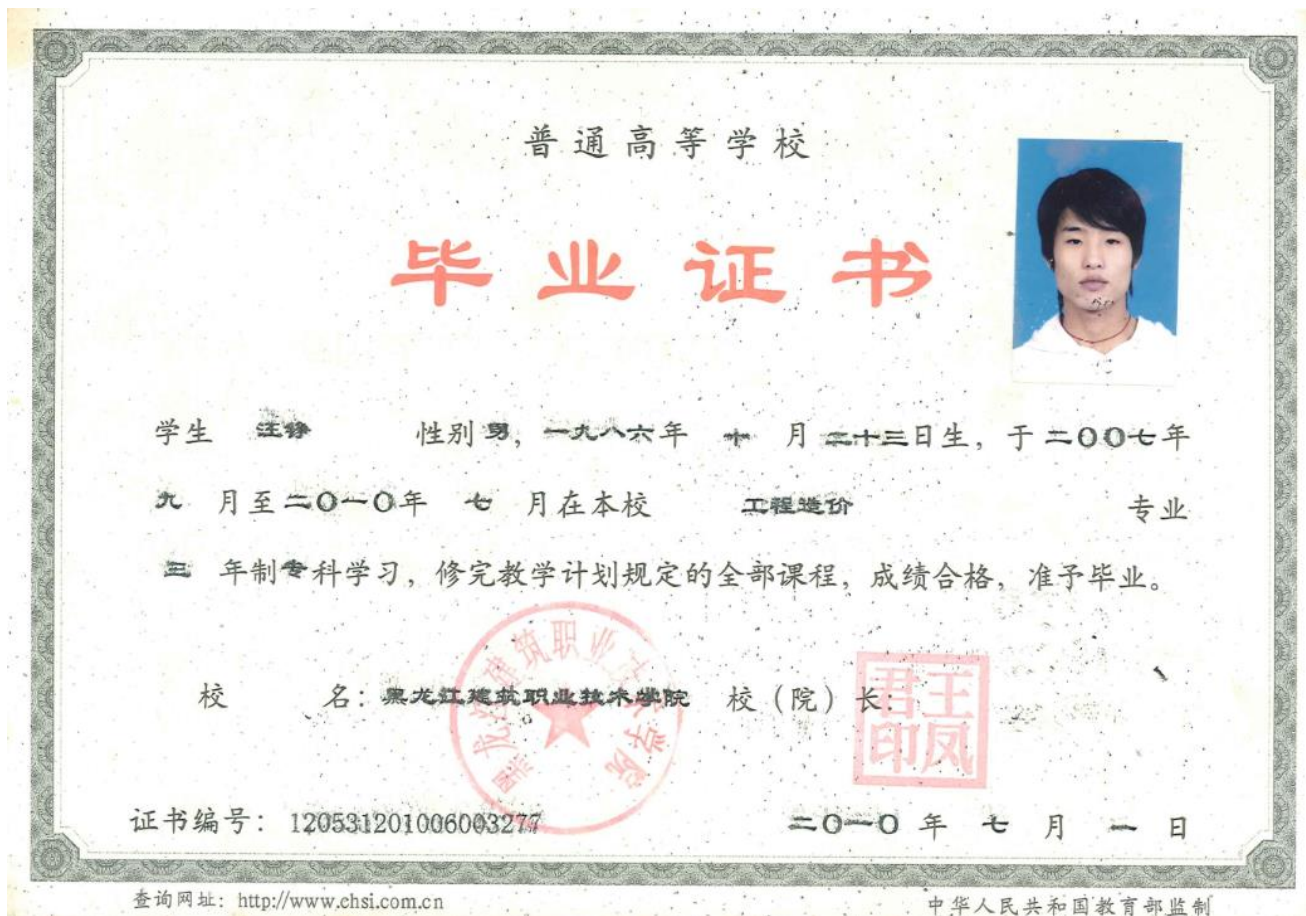 普通高等学校
毕业证书
学生 汪铮 性别 男，一九八六年 十 月 二十三日生，于 二〇〇七年
九 月至二〇一〇年 七 月在本校 工程造价 专业
三 年制专科学习，修完教学计划规定的全部课程，成绩合格，准予毕业。
校 名：黑龙江建筑职业技术学院 校（院）长：
黑龙江建筑职业技术学院
王凤君印
证书编号：120531201006003277 二〇一〇 年 七 月 一 日
查询网址：http://www.chsi.com.cn 中华人民共和国教育部监制